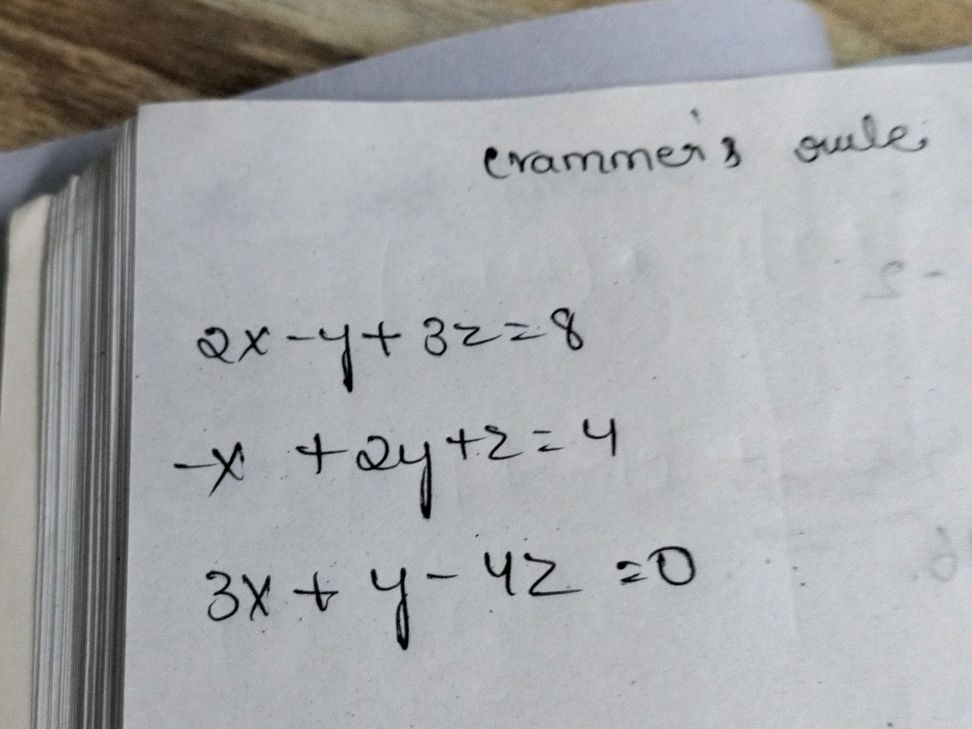 Crammer's rule
2x - y + 3z = 8
-x + 2y + z = 4
3x + y - 4z = 0